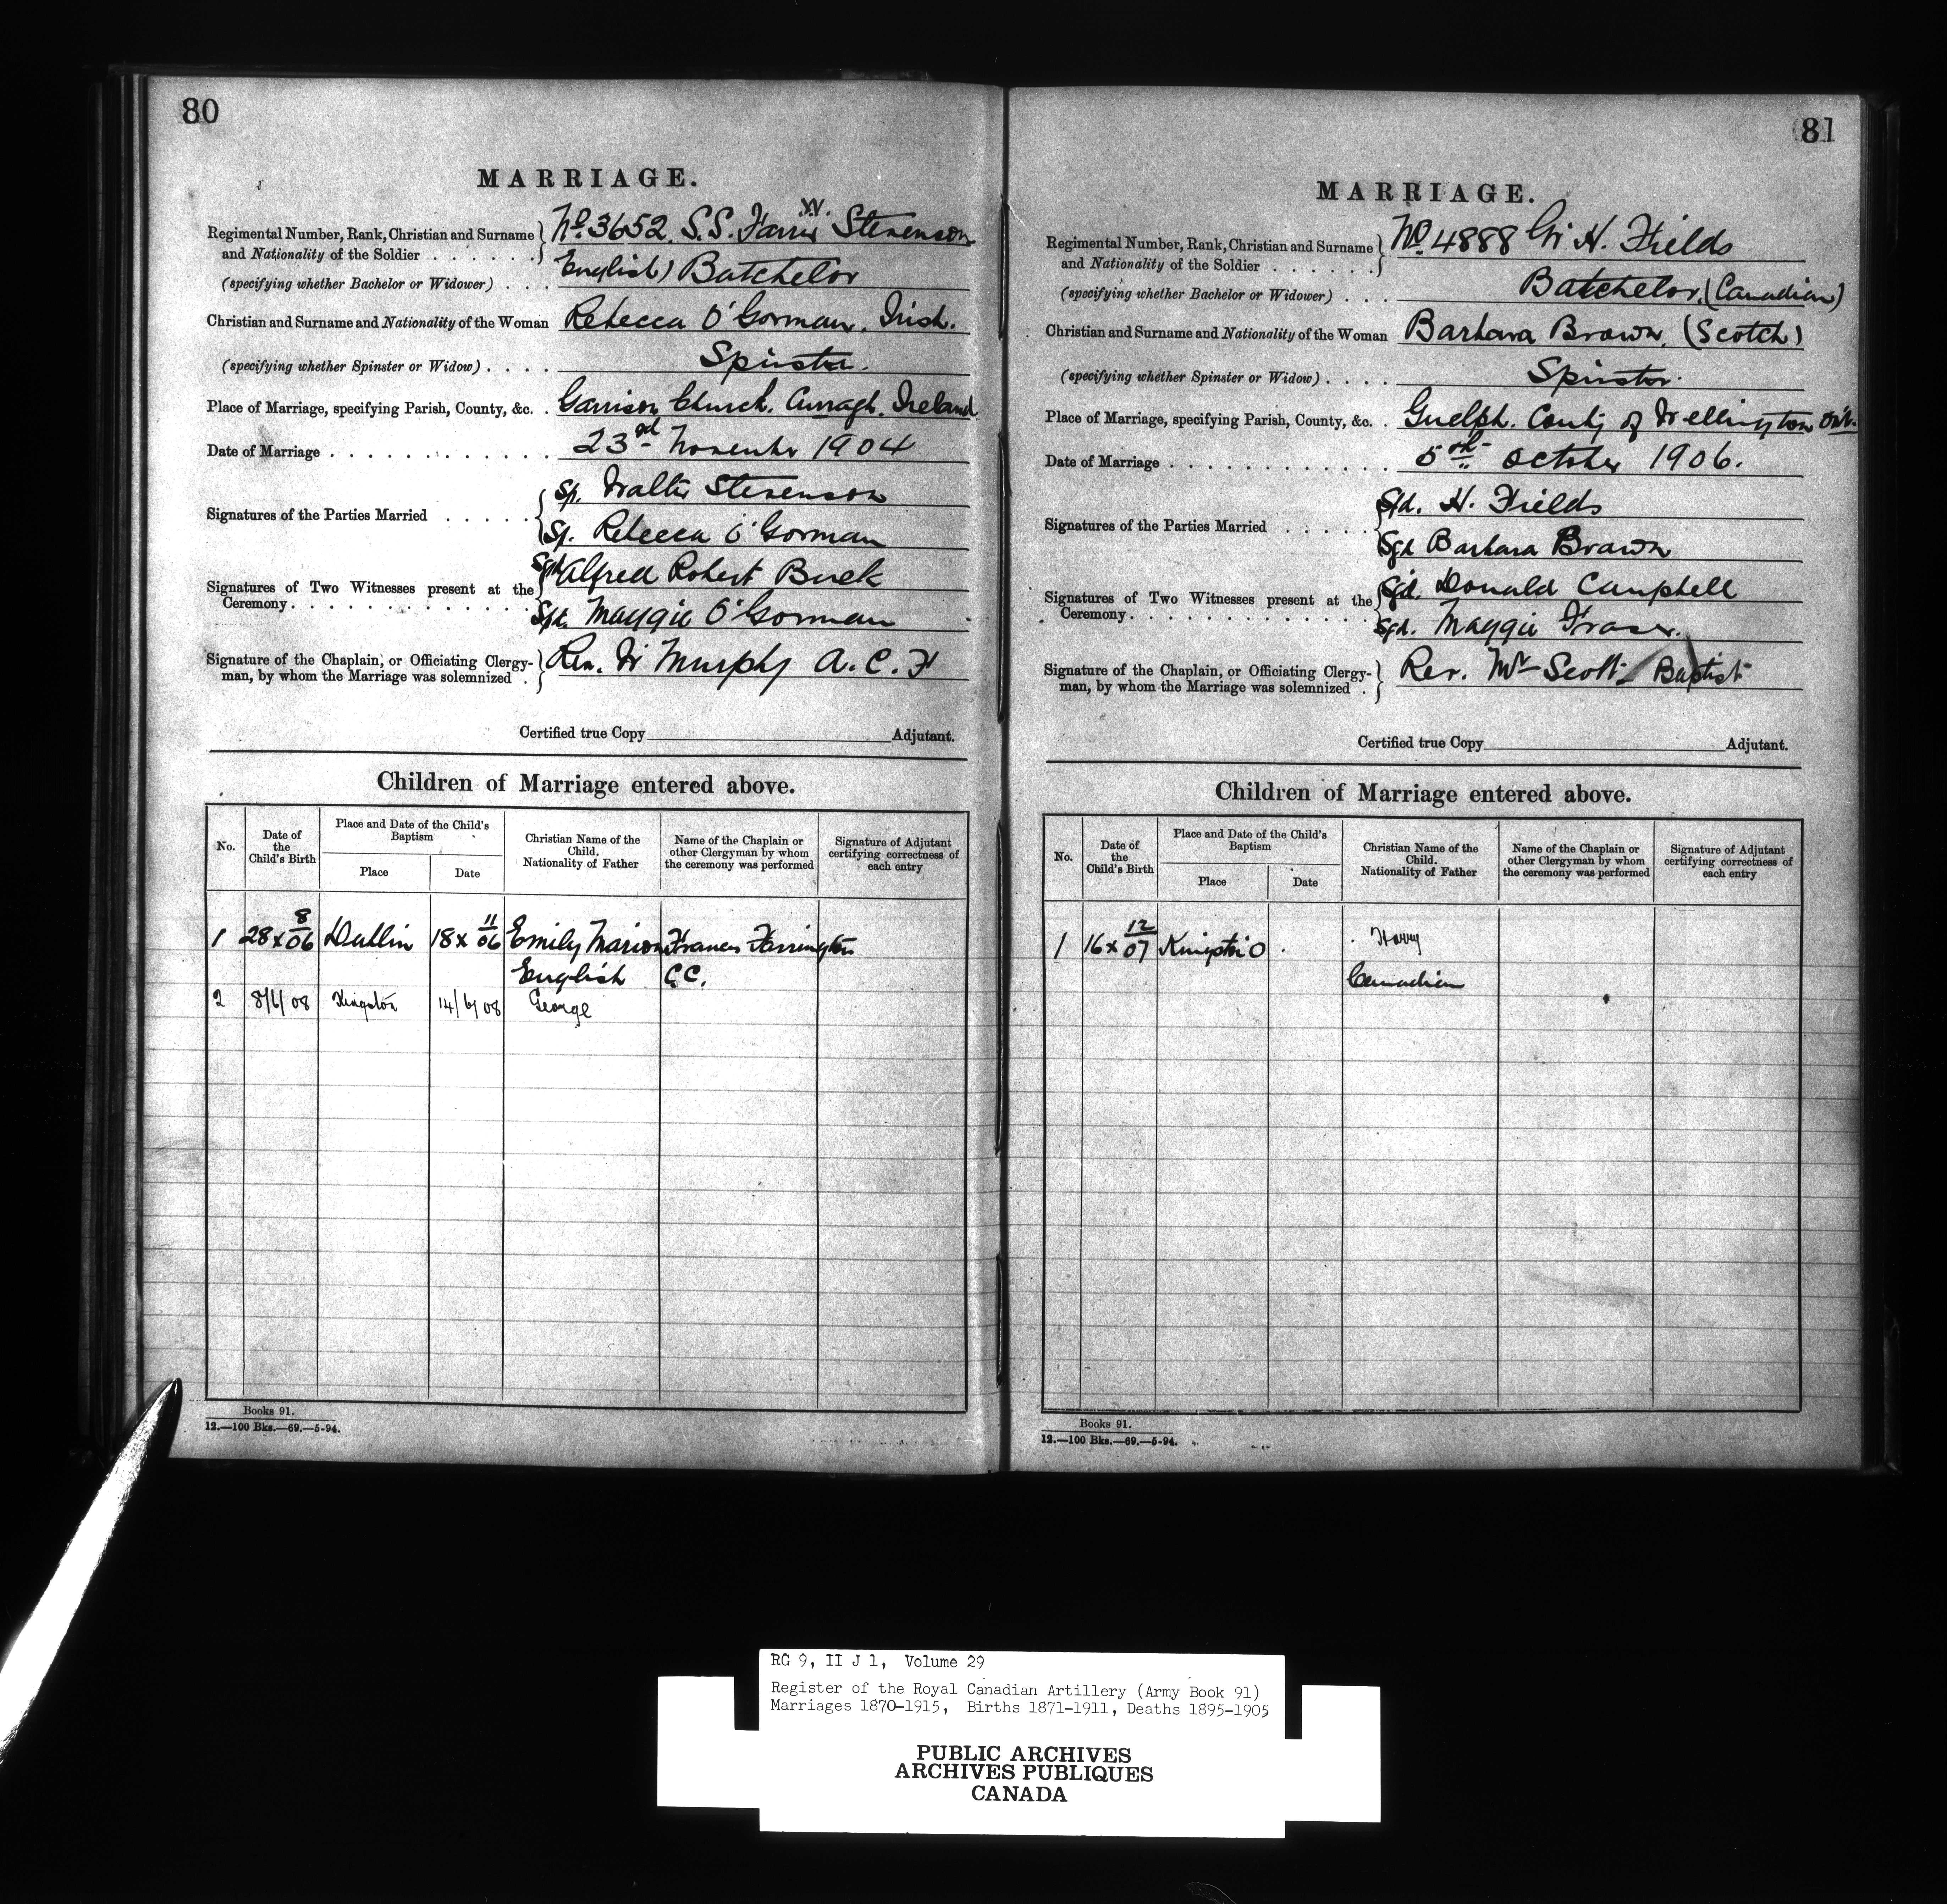 80
MARRIAGE.
Regimental Number, Rank, Christian and Surname and Nationality of the Soldier . . . . . . No. 3652. S.S. Farrier W. Stevenson
(specifying whether Bachelor or Widower) . . . English) Batchelor
Christian and Surname and Nationality of the Woman Rebecca O'Gorman. Irish.
(specifying whether Spinster or Widow) . . . . Spinster.
Place of Marriage, specifying Parish, County, &c. . Garrison Church. Curragh. Ireland
Date of Marriage . . . . . . . . . . . . 23rd November 1904
Signatures of the Parties Married . . . . . Walter Stevenson
Rebecca O'Gorman
Signatures of Two Witnesses present at the Ceremony. . . . . . . . . . . . . Sgd Alfred Robert Buck
Sgd. Maggie O'Gorman
Signature of the Chaplain, or Officiating Clergy-man, by whom the Marriage was solemnized . Rev. W Murphy A.C.F
Certified true Copy Adjutant.
Children of Marriage entered above.
No. Date of the Child's Birth Place and Date of the Child's Baptism Place Date Christian Name of the Child. Nationality of Father Name of the Chaplain or other Clergyman by whom the ceremony was performed Signature of Adjutant certifying correctness of each entry
1 28 x 8/06 Dublin 18 x 11/06 Emily Marion Frances Farrington
English C.C.
2 8/6/08 Kingston 14/6/08 George
Books 91.
12.—100 Bks.—69.—5-94.
81
MARRIAGE.
Regimental Number, Rank, Christian and Surname and Nationality of the Soldier . . . . . . No. 4888 Gr H. Fields
(specifying whether Bachelor or Widower) . . . Batchelor. (Canadian)
Christian and Surname and Nationality of the Woman Barbara Brown. (Scotch)
(specifying whether Spinster or Widow) . . . . Spinster.
Place of Marriage, specifying Parish, County, &c. . Guelph. County of Wellington Ont.
Date of Marriage . . . . . . . . . . . . 5th October 1906.
Signatures of the Parties Married . . . . . Sgd. H. Fields
Sgd Barbara Brown
Signatures of Two Witnesses present at the Ceremony. . . . . . . . . . . . . Sgd. Donald Campbell
Sgd. Maggie Fraser.
Signature of the Chaplain, or Officiating Clergy-man, by whom the Marriage was solemnized . Rev. Mr Scott Baptist
Certified true Copy Adjutant.
Children of Marriage entered above.
No. Date of the Child's Birth Place and Date of the Child's Baptism Place Date Christian Name of the Child. Nationality of Father Name of the Chaplain or other Clergyman by whom the ceremony was performed Signature of Adjutant certifying correctness of each entry
1 16 x 12/07 Kingston O Harry
Canadian
Books 91.
12.—100 Bks.—69.—5-94.
RG 9, II J 1, Volume 29
Register of the Royal Canadian Artillery (Army Book 91)
Marriages 1870-1915, Births 1871-1911, Deaths 1895-1905
PUBLIC ARCHIVES
ARCHIVES PUBLIQUES
CANADA